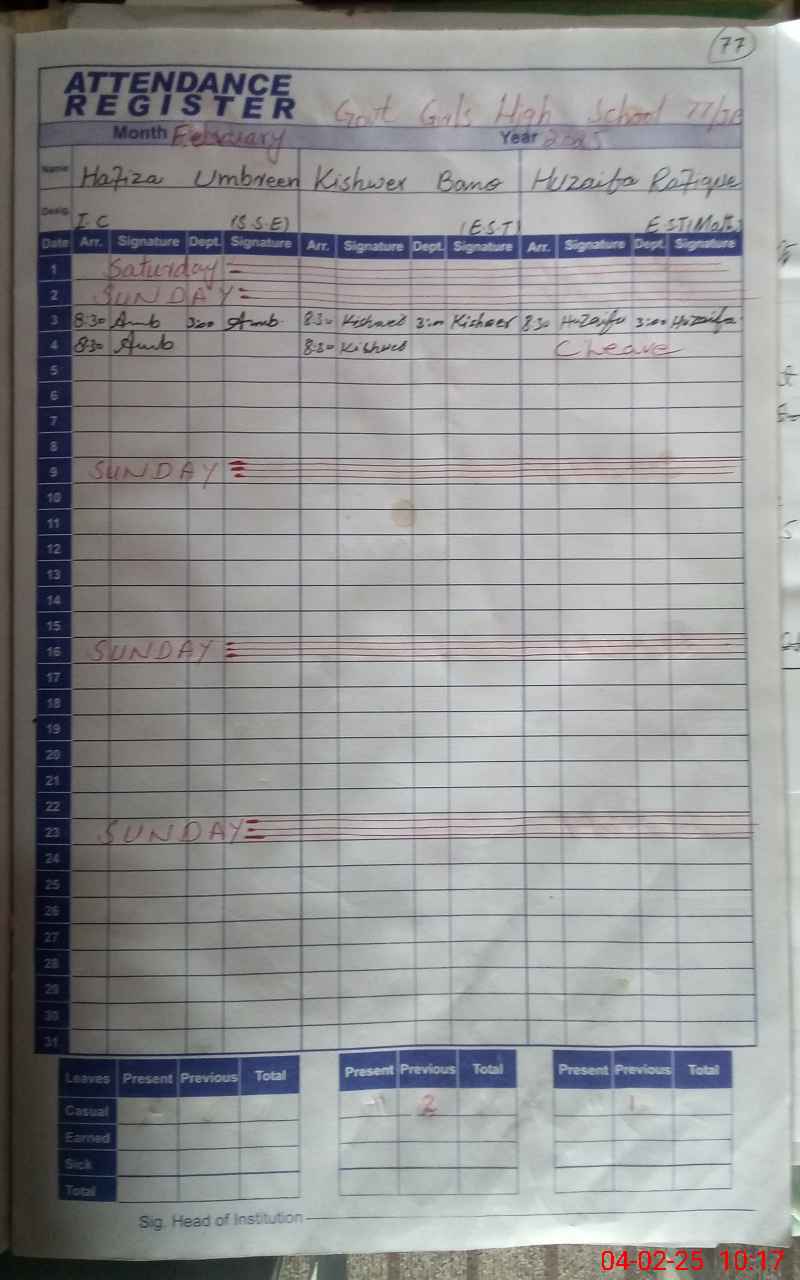 77
ATTENDANCE
REGISTER
Govt Girls High School 77/
Month February Year 2025
Name Hafiza Umbreen Kishwer Bano Huzaifa Rafique
Desig. I.C (S.S.E) (E.S.T) E.ST(Math)
Date Arr. Signature Dept. Signature Arr. Signature Dept. Signature Arr. Signature Dept. Signature
1 Saturday
2 SUNDAY
3 8:30 Amb 3:00 Amb 8:30 Kishwer 3:00 Kishwer 8:30 Huzaifa 3:00 Huzaifa
4 8:30 Amb 8:30 Kishwer C leave
5
6
7
8
9 SUNDAY
10
11
12
13
14
15
16 SUNDAY
17
18
19
20
21
22
23 SUNDAY
24
25
26
27
28
29
30
31
Leaves Present Previous Total Present Previous Total Present Previous Total
Casual 2 1
Earned
Sick
Total
Sig. Head of Institution
04-02-25 10:17